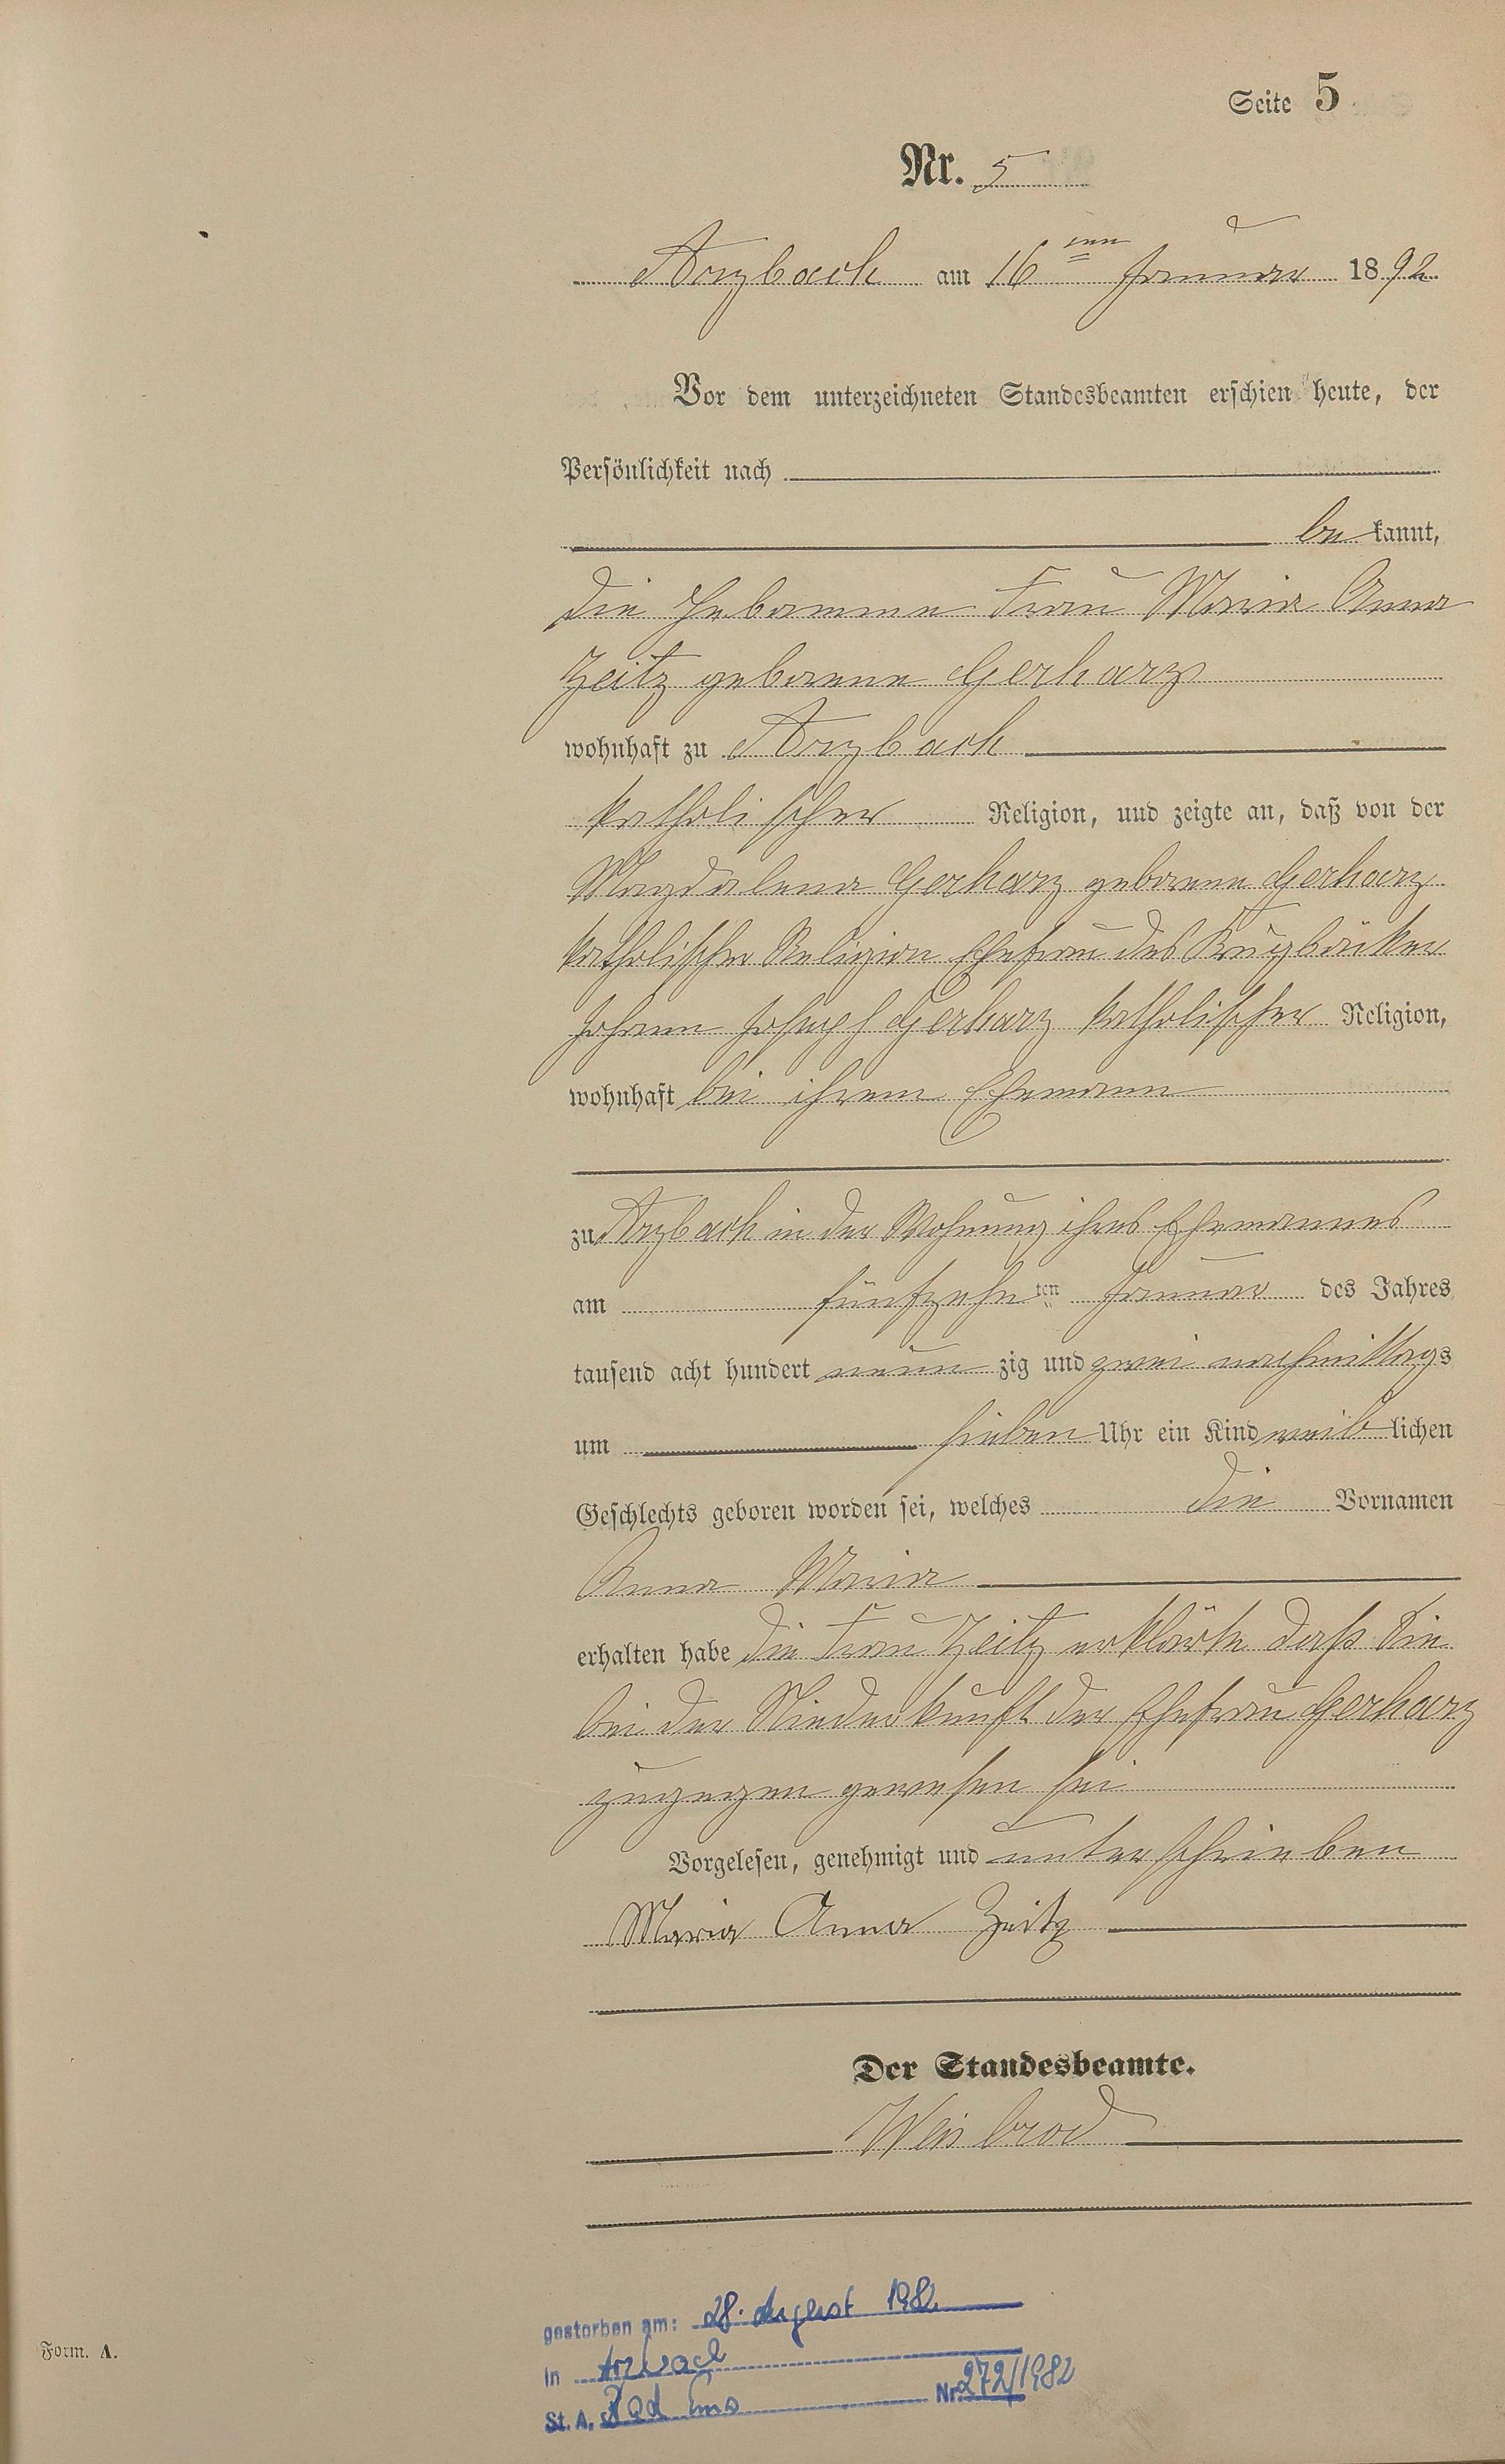 Seite 5
Nr. 5
Arzbach am 16ten Januar 1892
Vor dem unterzeichneten Standesbeamten erschien heute, der
Persönlichkeit nach
be kannt,
die Hebamme Frau Maria Anna
Zeitz geborene Gerharz
wohnhaft zu Arzbach
katholischer Religion, und zeigte an, daß von der
Magdalena Gerharz geborene Gerharz
katholischer Religion Ehefrau des Krugbäcker
Johann Joseph Gerharz katholischer Religion,
wohnhaft bei ihrem Ehemann
zu Arzbach in der Wohnung ihres Ehemannes
am fünfzehn ten Januar des Jahres
tausend acht hundert neun zig und zwei nachmittags
um sieben Uhr ein Kind weib lichen
Geschlechts geboren worden sei, welches die Vornamen
Anna Maria
erhalten habe die Frau Zeitz erklärte daß Sie
bei der Niederkunft der Ehefrau Gerharz
zugegen gewesen sei
Vorgelesen, genehmigt und unterschrieben
Maria Anna Zeitz
Der Standesbeamte.
Weisbrod
gestorben am: 28. August 1982
in Arzbach
St. A. Bad Ems Nr. 272/1982
Form. A.